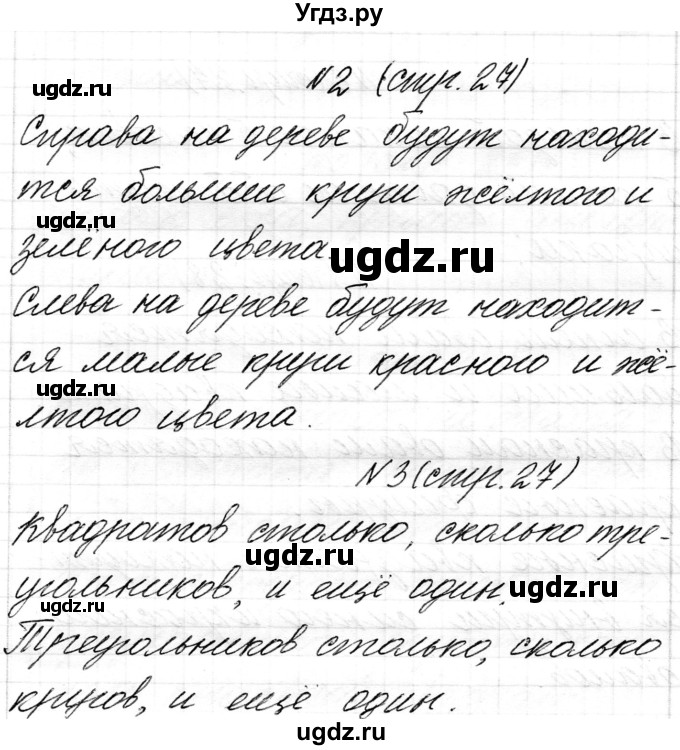 Угдз.ру
№2 (стр. 27)
ugdz.ru
Справа на дереве будут находи-
тся большие круги жёлтого и
ugdz.ru
зелёного цвета.
ugdz.ru
Слева на дереве будут находит-
ся малые круги красного и жё-
ugdz.ru
лтого цвета.
№3 (стр. 27)
Квадратов столько, сколько тре-
ugdz.ru
угольников, и ещё один.
ugdz.ru
Треугольников столько, сколько
кругов, и ещё один.
ugdz.ru
ugdz.ru